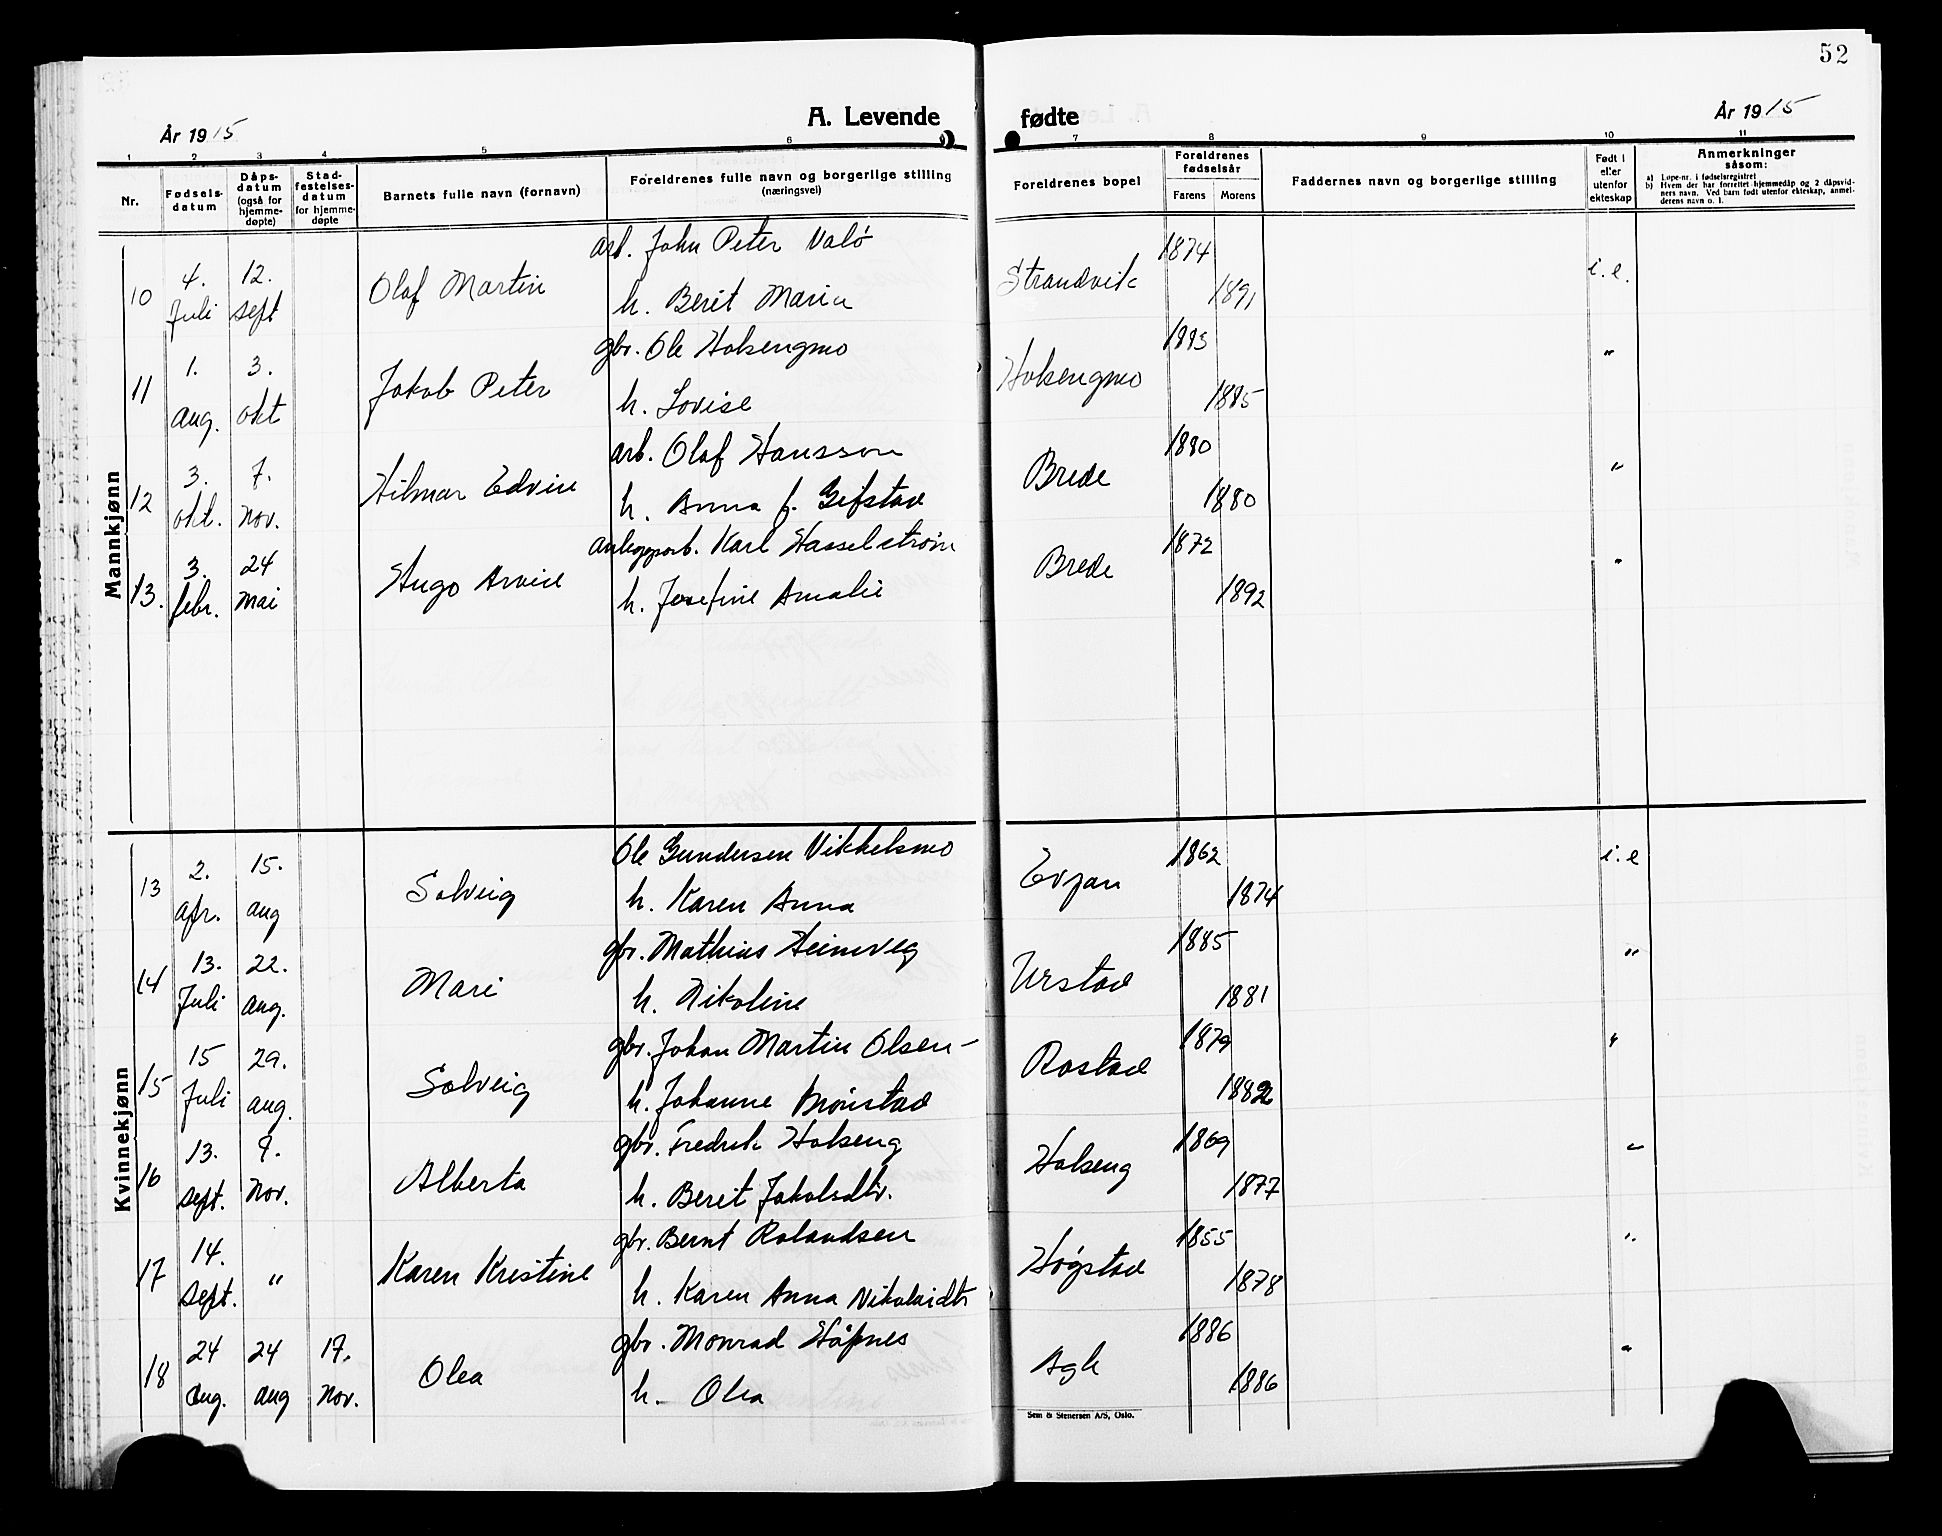 52
A. Levende fødte
År 1915
År 1915
1 2 3 4 5 6 7 8 9 10 11
Nr.
Fødsels-datum
Dåps-datum (også for hjemme-døpte)
Stad-festelses-datum for hjemme-døpte
Barnets fulle navn (fornavn)
Foreldrenes fulle navn og borgerlige stilling (næringsvei)
Foreldrenes bopel
Foreldrenes fødselsår
Farens Morens
Faddernes navn og borgerlige stilling
Født i eller utenfor ekteskap
Anmerkninger såsom:
a) Løpe-nr. i fødselsregistret
b) Hvem der har forrettet hjemmedåp og 2 dåpsvid-ners navn. Ved barn født utenfor ekteskap, anmel-derens navn o. l.
Mannkjønn
10 4. Juli 12. sept Olaf Martin arb. John Peter Valø h. Berit Maria Strandvik 1874 1891 i.e.
11 1. aug. 3. okt Jakob Peter gbr. Ole Holsengmo h. Lovise Holsengmo 1883 1885 "
12 3. okt. 7. nov. Hilmar Edvin arb. Olaf Hansson h. Anna f. Geistad Brede 1880 1880 "
13. 3. febr. 24 mai Hugo Arvid anleggsarb. Karl Hasselstrøm h. Josefine Amalie Brede 1872 1892 "
Kvinnekjønn
13 2. apr. 15. aug Solveig Ole Gundersen Vikkelsmo h. Karen Anna Evjan 1862 1874 i.e
14 13. Juli 22. aug. Mari gbr. Mathias Heimveg h. Nikoline Urstad 1885 1881 "
15 15 Juli 29. aug. Solveig gbr. Johan Martin Olsen - h. Johanne Brønstad Rostad 1879 1882 "
16 13. sept. 7. nov. Alberta gbr. Fredrik Holseng h. Berit Jakobsdtr. Holseng 1869 1877 "
17 14. sept. " Karen Kristine gbr. Bernt Rolandsen h. Karen Anna Nikolaidtr Høgstad 1855 1878 "
18 24 aug. 24 aug 17. nov. Olea gbr. Monrad Håpnes h. Olea Agle 1886 1886 "
Sem & Stenersen A/S, Oslo.